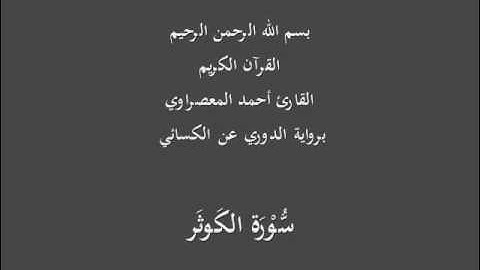 بسم الله الرحمن الرحيم
القرآن الكريم
القارئ أحمد المعصراوي
برواية الدوري عن الكسائي
سُّوْرَة الكَوثَر